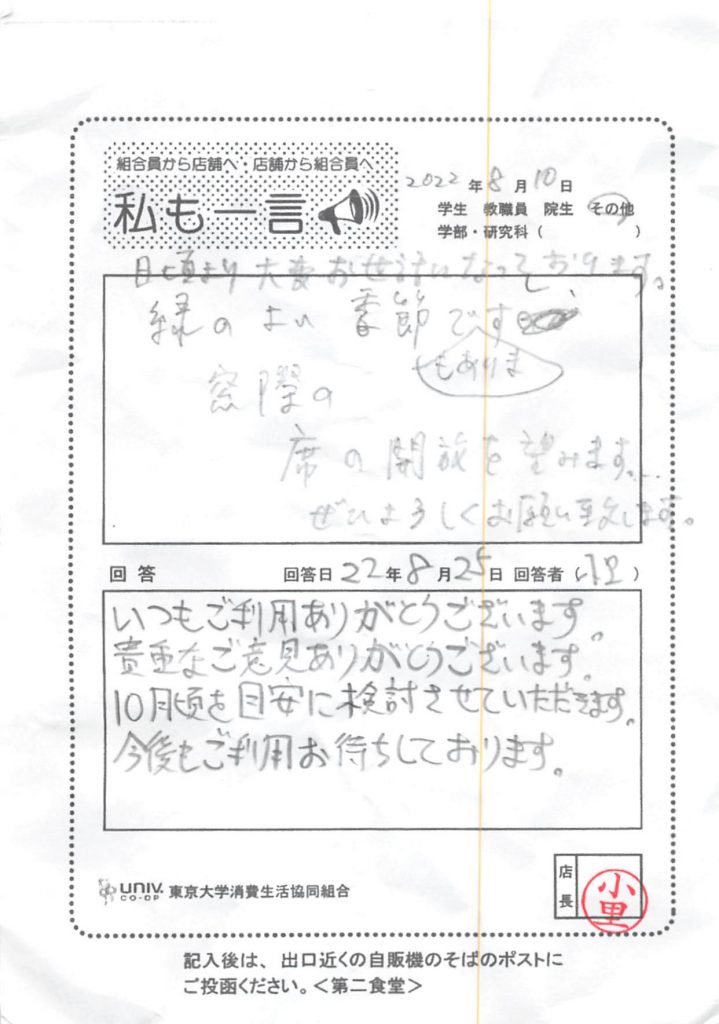 組合員から店舗へ・店舗から組合員へ
私も一言
2022年8月10日
学生 教職員 院生 その他
学部・研究科（ ）
日頃より大変お世話になっております。
緑のよい季節ですし、
もありま
窓際の
席の開放を望みます...
ぜひよろしくお願い致します。
回答 回答日22年8月25日 回答者（小里）
いつもご利用ありがとうございます。
貴重なご意見ありがとうございます。
10月頃を目安に検討させていただきます。
今後もご利用お待ちしております。
UNIV. CO-OP 東京大学消費生活協同組合
店長
小里
記入後は、出口近くの自販機のそばのポストに
ご投函ください。＜第二食堂＞